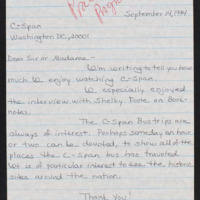 September 14, 1994
C-Span
Washington DC, 20001
Dear Sir or Madame,-
I'm writing to tell you how
much I enjoy watching C-Span.
I especially enjoyed
the interview with Shelby Foote on Book-
notes.
The C-Span Bus trips are
always of interest. Perhaps someday an hour
or two can be devoted, to show all of the
places the C-Span bus has traveled
It is of particular interest to see the historic
sites around the nation.
Thank You!